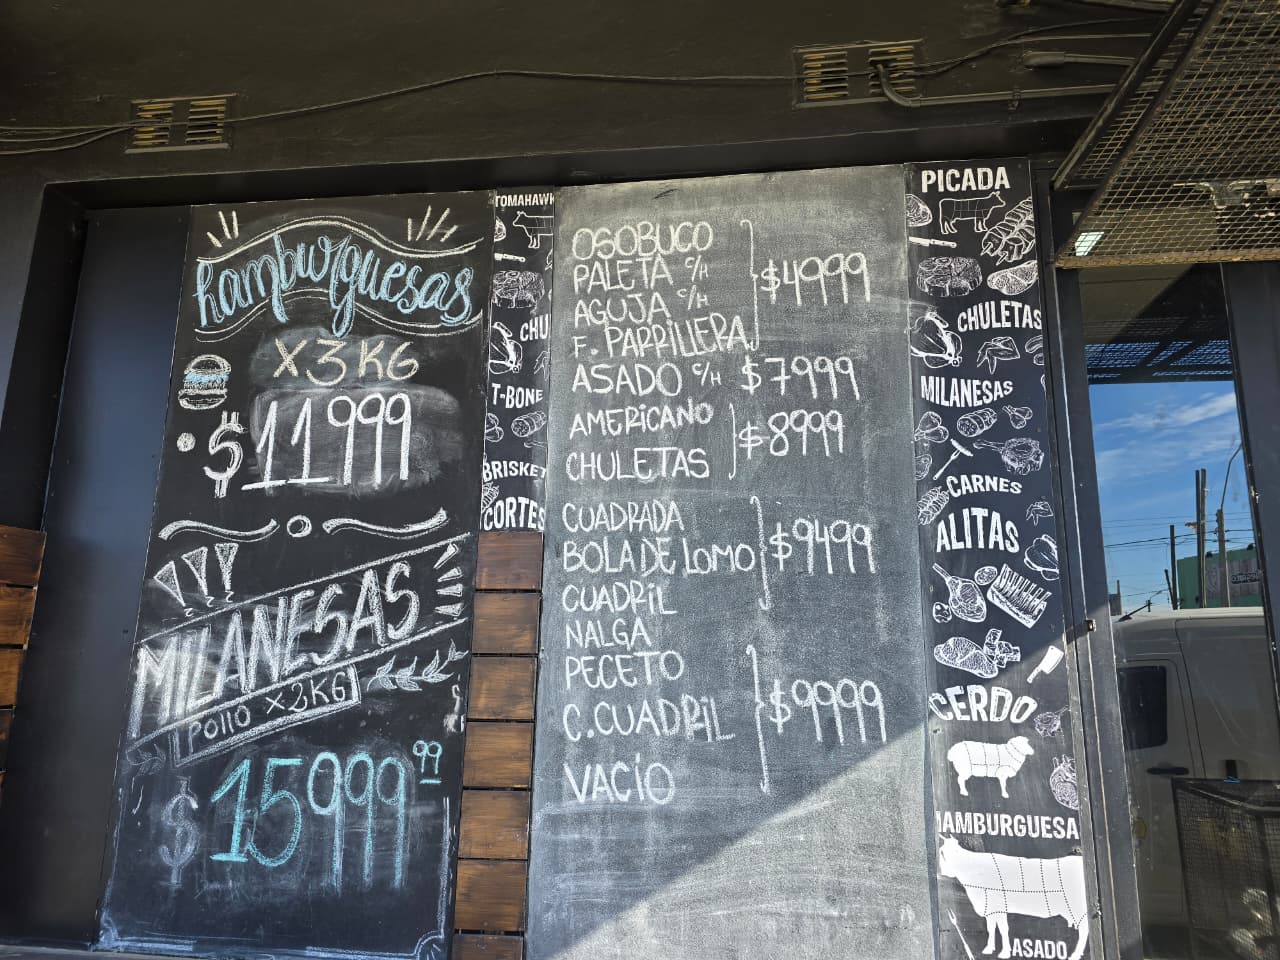 hamburguesas
X3KG
$11999
MILANESAS
POLLO X2KG
$15999 99
TOMAHAWK
CHU
T-BONE
BRISKET
CORTES
OSOBUCO
PALETA c/H
AGUJA c/H
F. PARRILLERA
$4999
ASADO c/H $7999
AMERICANO
CHULETAS
$8999
CUADRADA
BOLA DE LOMO
CUADRIL
$9499
NALGA
PECETO
C.CUADRIL
VACÍO
$9999
PICADA
CHULETAS
MILANESAS
CARNES
ALITAS
CERDO
HAMBURGUESA
ASADO